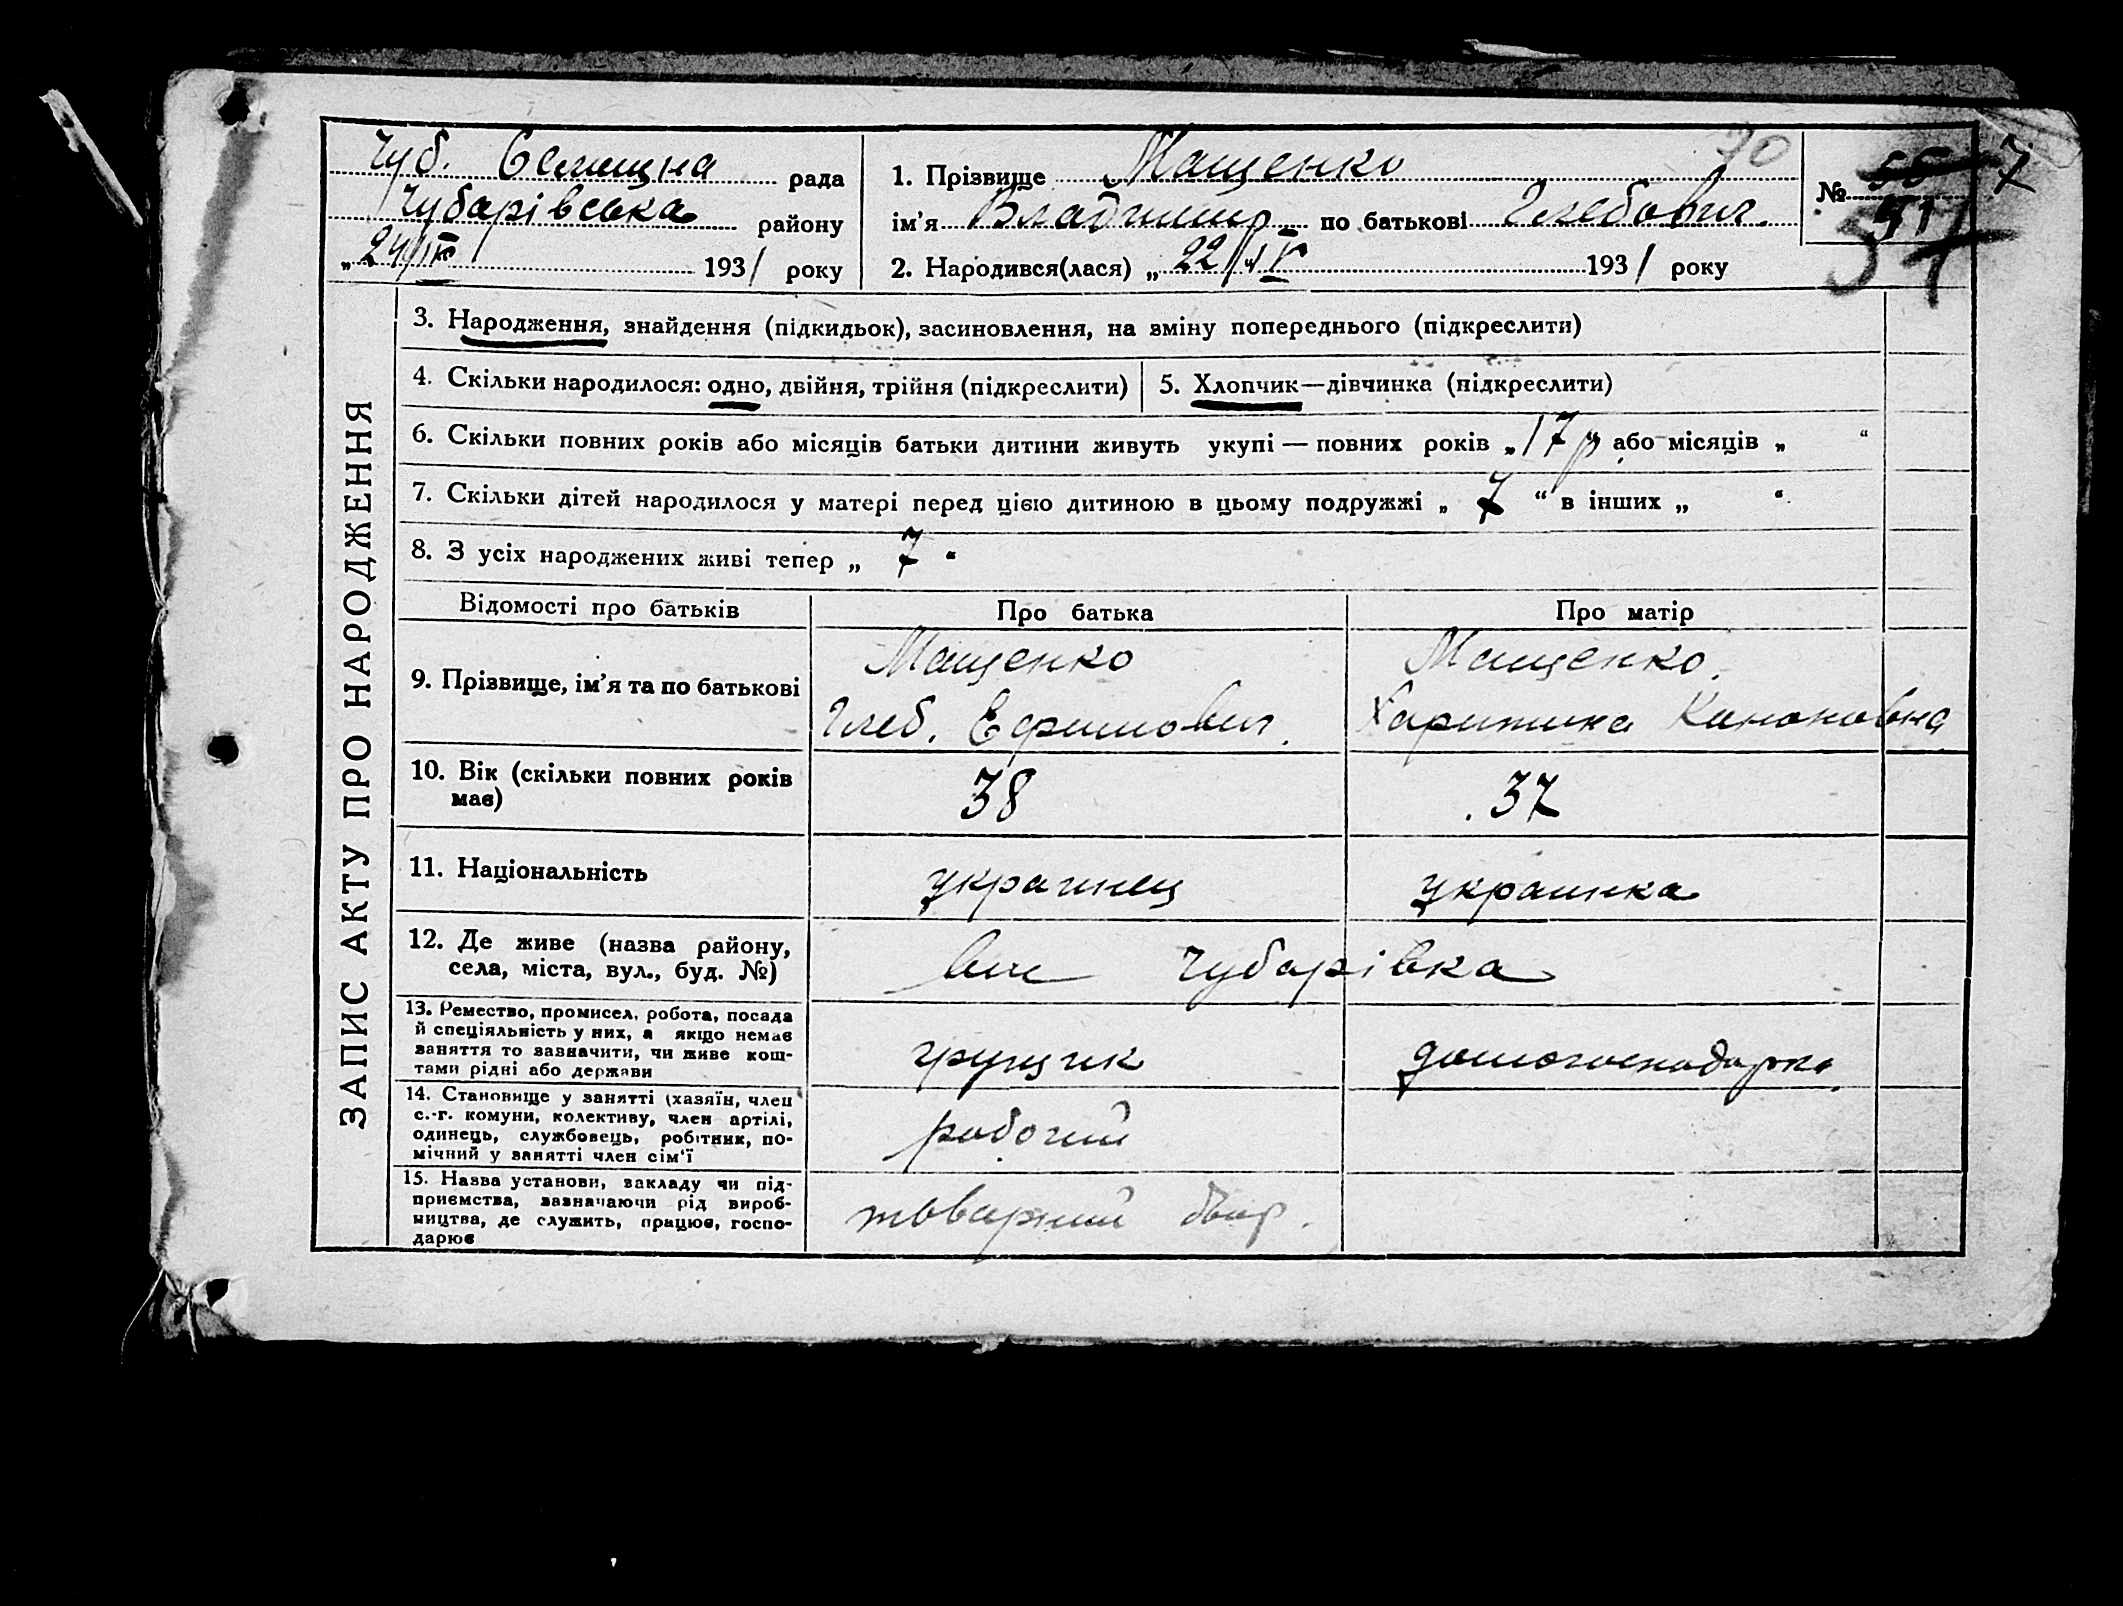 Чуб. Селищна рада
Чубарівська району
„24/IV 1931 року
1. Прізвище Мащенко
ім’я Владимир по батькові Глебович.
2. Народився(лася) „22/IV 1931 року
70
№ 51
7
57
ЗАПИС АКТУ ПРО НАРОДЖЕННЯ
3. Народження, знайдення (підкидьок), засиновлення, на зміну попереднього (підкреслити)
4. Скільки народилося: одно, двійня, трійня (підкреслити)
5. Хлопчик—дівчинка (підкреслити)
6. Скільки повних років або місяців батьки дитини живуть укупі — повних років „17 р“ або місяців „ “
7. Скільки дітей народилося у матері перед цією дитиною в цьому подружжі „ 7 “ в інших „ “.
8. З усіх народжених живі тепер „ 7 “
Відомості про батьків Про батька Про матір
9. Прізвище, ім’я та по батькові
Мащенко
Глеб. Ефимович.
Мащенко
Харитина Кононовна
10. Вік (скільки повних років
має)
38 37
11. Національність украинец украинка
12. Де живе (назва району,
села, міста, вул., буд. №)
Чубарівка
13. Ремество, промисел, робота, посада
й спеціяльність у них, а якщо немає
заняття то зазначити, чи живе кош-
тами рідні або держави
грущик домогосподарка
14. Становище у занятті (хазяїн, член
с.-г. комуни, колективу, член артілі,
одинець, службовець, робітник, по-
мічний у занятті член сім‘ї
рабочий
15. Назва установи, закладу чи під-
приємства, зазначаючи рід вироб-
ництва, де служить, працює, госпо-
дарює
товарний двор.